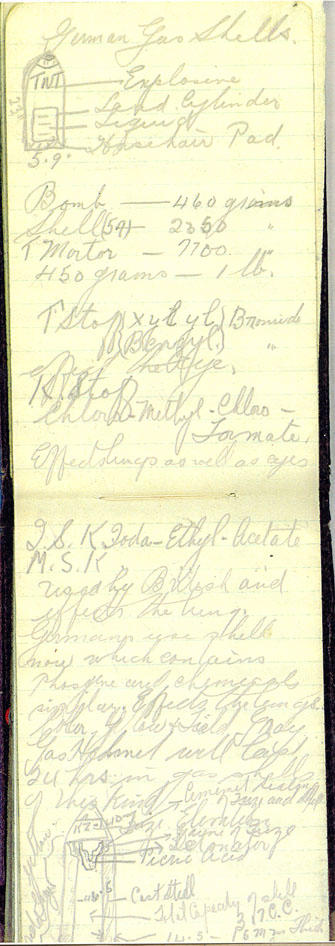 German Gas Shells.
TNT
Explosive
Lead Cylinder
Liquid
Horsehair Pad.
5.9"
Bomb — 460 grams
Shell (5.9) 2350 "
T Mortor — 7700. "
450 grams — 1 lb.
T Stof {Xylyl} Bromide
{Benzyl.} "
Effect the Eye.
K. Stof
Chloro-Methyl-Chloro-
Formate.
Effect lungs as well as eyes
I. S. K. Ioda-Ethyl-Acetate
M. S. K.
used by British and
effects the lungs.
Germans use shell
now which contains
Phosgene and chemicals
similar. Effects the lungs.
Gas Helmet will last
24 hrs. in gas
of this kind
Detonator
Picric Acid
Cast Steel
Total Capacity of shell
14.5